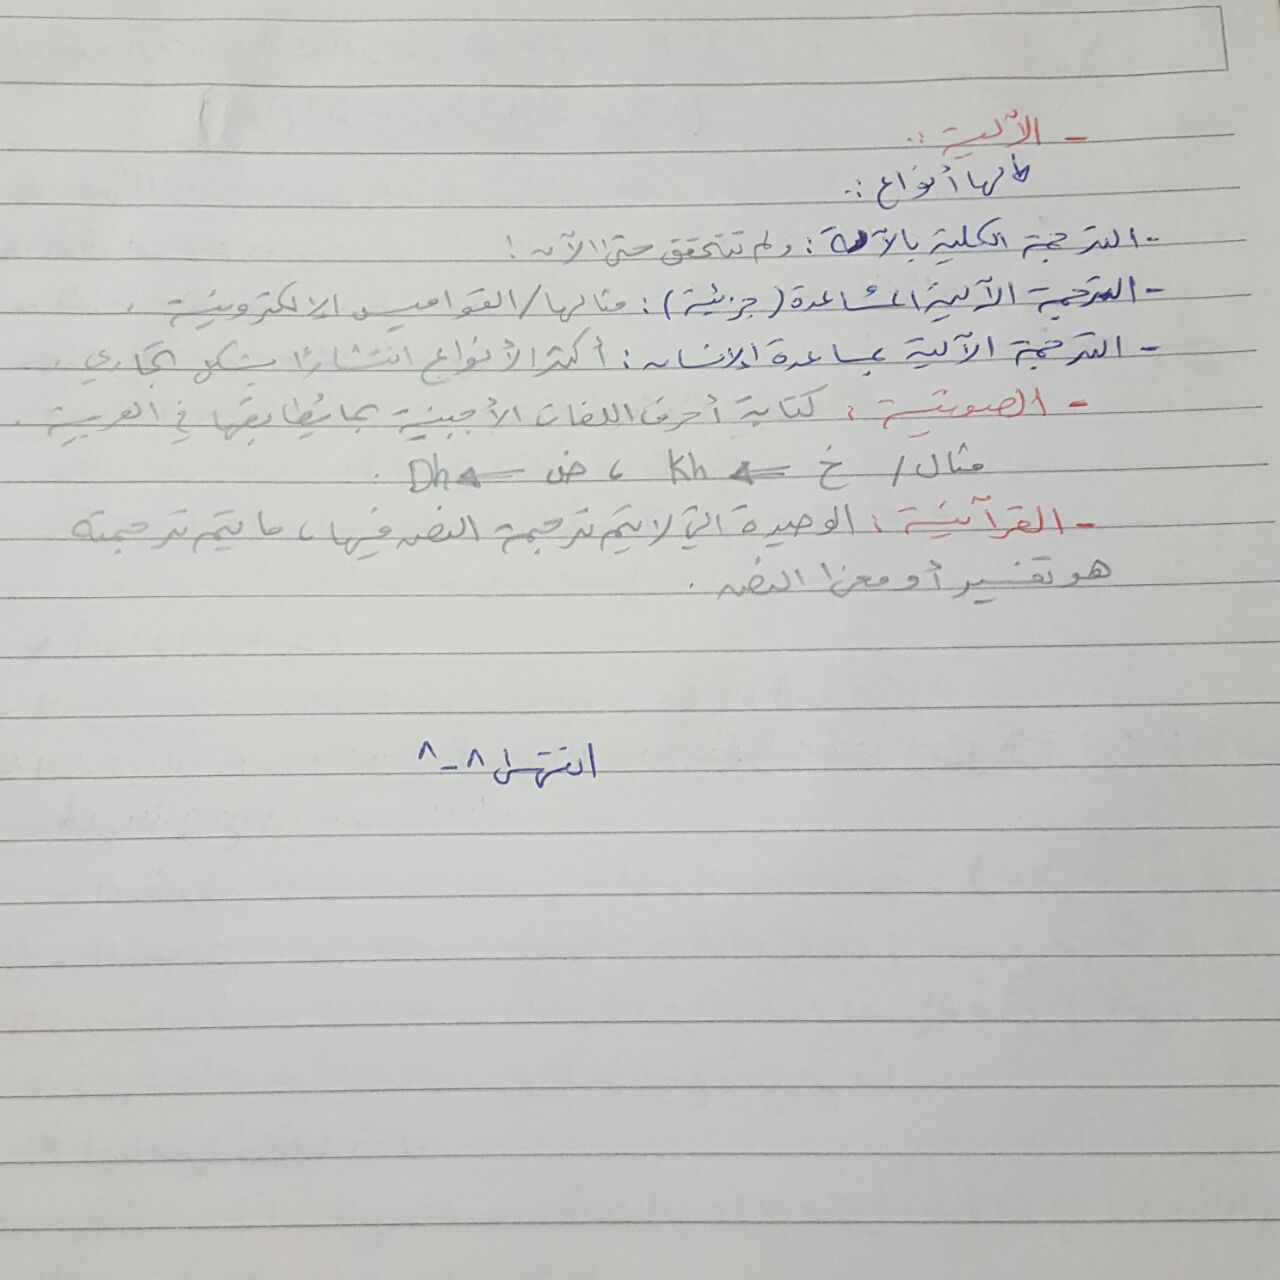 - الآلية :.
لها أنواع :.
- الترجمة الكلية بالآلة : ولم تتحقق حتى الآن !
- الترجمة الآلية المساعدة ( جزئية ) : مثالها / القواميس الإلكترونية .
- الترجمة الآلية بمساعدة الإنسان : أكثر الأنواع انتشارًا بشكل تجاري .
- الصوتية : كتابة أحرف اللغات الأجنبية بما يُطابقها في العربية .
مثال / خ ← Kh ، ض ← Dh .
- القرآنية : الوحيدة التي لا يتم ترجمة النص فيها ، ما يتم ترجمته
هو تفسير أو معنى النص .
انتهى ٨-٨